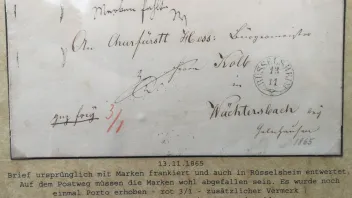 Marken fehlt
An Churfürstl. Hess. Bürgermeister
Herrn Kolb
in
RÜSSELSHEIM
13
11
3/1
Wächtersbach
Gelnhausen
1865
13.11.1865
Brief ursprünglich mit Marken frankiert und auch in Rüsselsheim entwertet.
Auf dem Postweg müssen die Marken wohl abgefallen sein. Es wurde noch
einmal Porto erhoben - rot 3/1 - zusätzlicher Vermerk